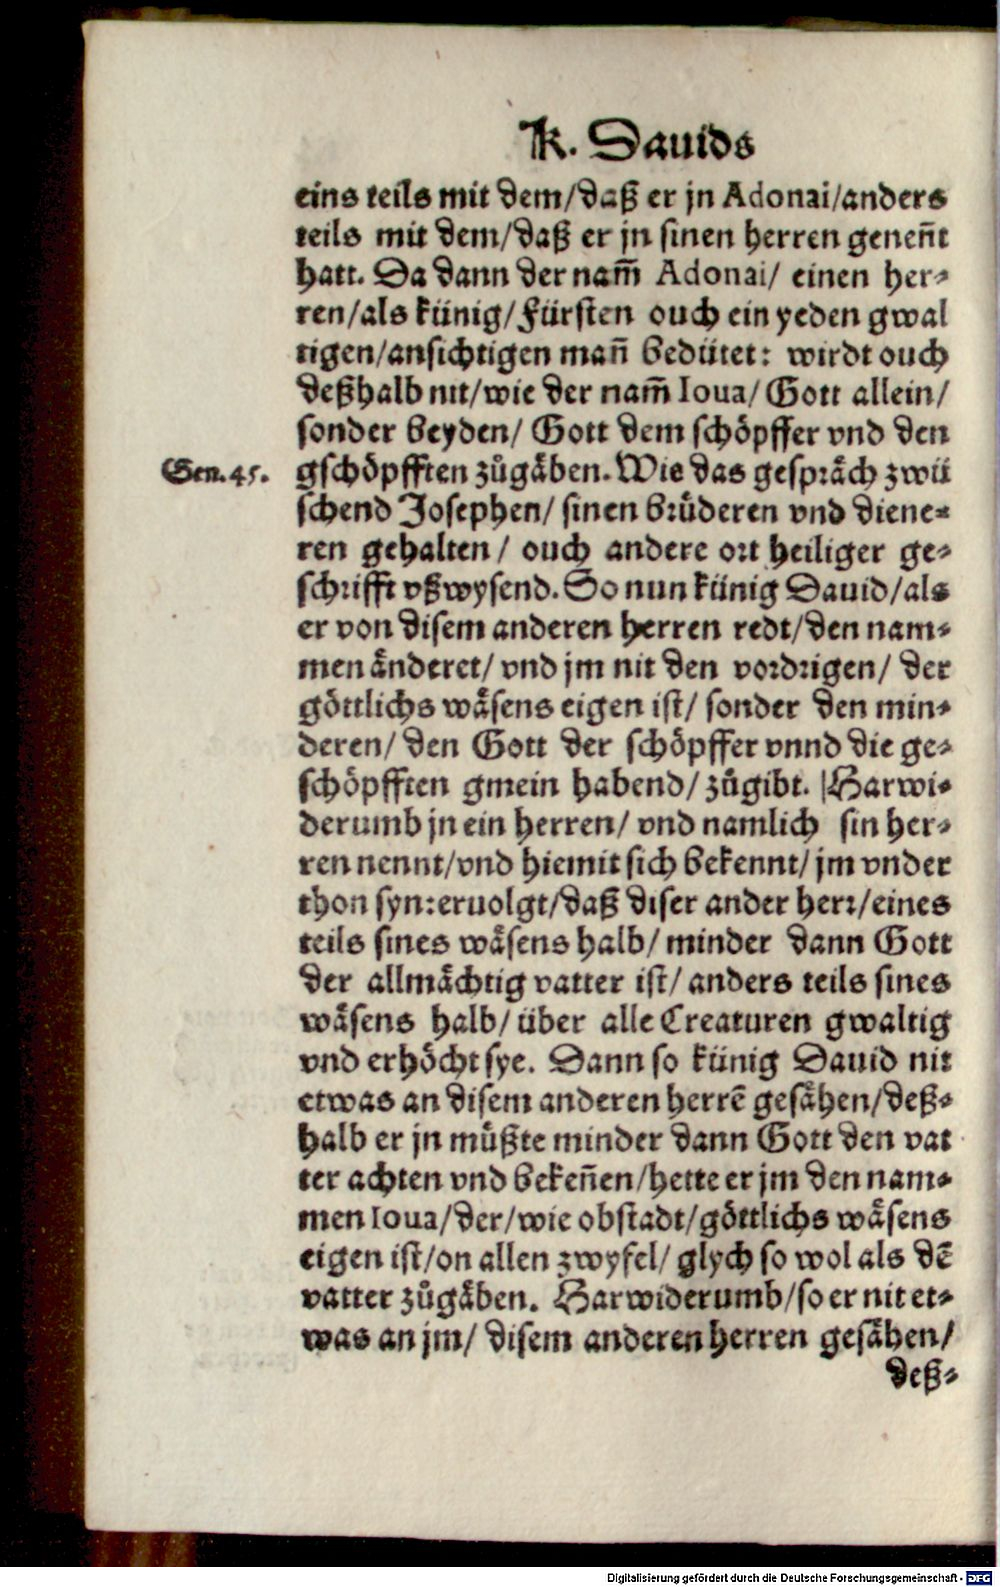 K. Dauids
eins teils mit dem/daß er jn Adonai/anders
teils mit dem/daß er jn sinen herren geneñt
hatt. Da dann der nam̃ Adonai/ einen her-
ren/als künig/Fürsten ouch ein yeden gwal
tigen/ansichtigen mañ bedütet: wirdt ouch
deßhalb nit/wie der nam̃ Ioua/ Gott allein/
sonder beyden/ Gott dem schöpffer vnd den
Gen.45. gschöpfften zůgäben. Wie das gespräch zwü
schend Josephen/ sinen brüderen vnd diene-
ren gehalten/ ouch andere ort heiliger ge-
schrifft vßwysend. So nun künig Dauid/als
er von disem anderen herren redt/den nam-
men änderet/ vnd jm nit den vordrigen/ der
göttlichs wäsens eigen ist/ sonder den min-
deren/ den Gott der schöpffer vnnd die ge-
schöpfften gmein habend/ zůgibt. Harwi-
derumb jn ein herren/ vnd namlich sin her-
ren nennt/vnd hiemit sich bekennt/ jm vnder
thon syn: eruolgt/daß diser ander herr/eines
teils sines wäsens halb/ minder dann Gott
der allmächtig vatter ist/ anders teils sines
wäsens halb/ über alle Creaturen gwaltig
vnd erhöcht sye. Dann so künig Dauid nit
etwas an disem anderen herrē gesähen/deß-
halb er jn müßte minder dann Gott den vat
ter achten vnd bekeñen/hette er jm den nam-
men Ioua/der/wie obstadt/göttlichs wäsens
eigen ist/on allen zwyfel/ glych so wol als dē
vatter zůgäben. Harwiderumb/so er nit et-
was an jm/ disem anderen herren gesähen/
deß-
Digitalisierung gefördert durch die Deutsche Forschungsgemeinschaft - DFG